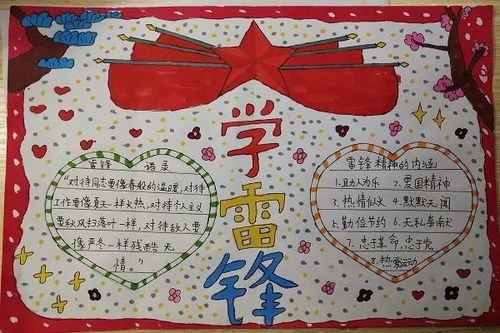 学
雷
锋
雷锋 语录
"对待同志要像春般的温暖,对待
工作要像夏天一样火热,对待个人主义
要秋风扫落叶一样,对待敌人要
像严冬一样残酷无
情。"
雷锋精神的内涵
1.助人为乐 2.爱国精神
3.热情似火 4.默默无闻
5.勤俭节约 6.无私奉献
7.忠于革命,忠于党
8.热爱劳动